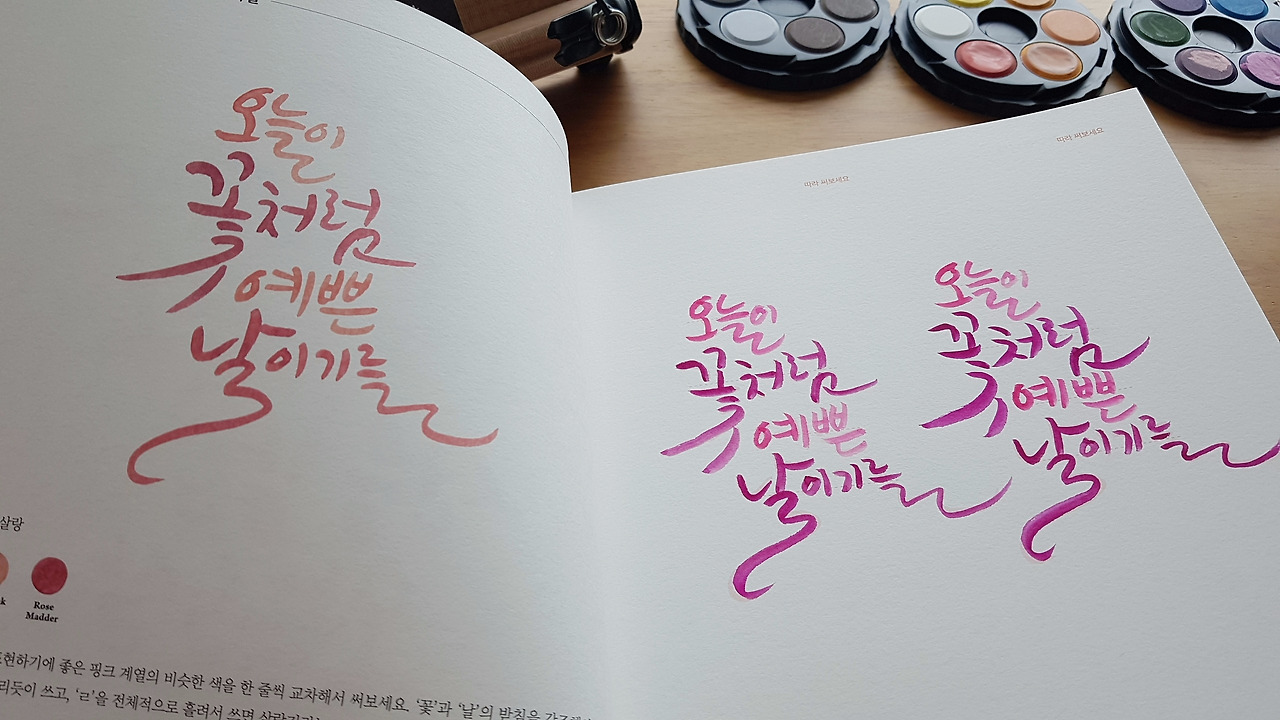 오늘이
꽃처럼
예쁜
날이기를
살랑
Rose
Madder
표현하기에 좋은 핑크 계열의 비슷한 색을 한 줄씩 교차해서 써보세요. ‘꽃’과 ‘날’의 받침을
쓰고, ‘ㄹ’을 전체적으로 흘려서 쓰면
따라 써보세요
따라 써보세요
오늘이
꽃처럼
예쁜
날이기를
오늘이
꽃처럼
예쁜
날이기를